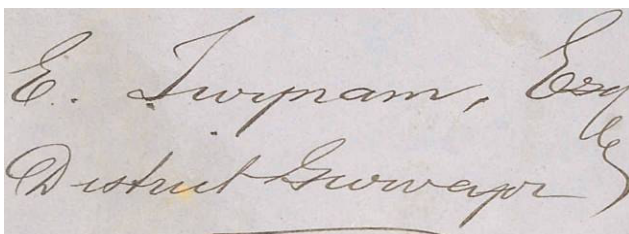 E. Twynam, Esq
District Surveyor